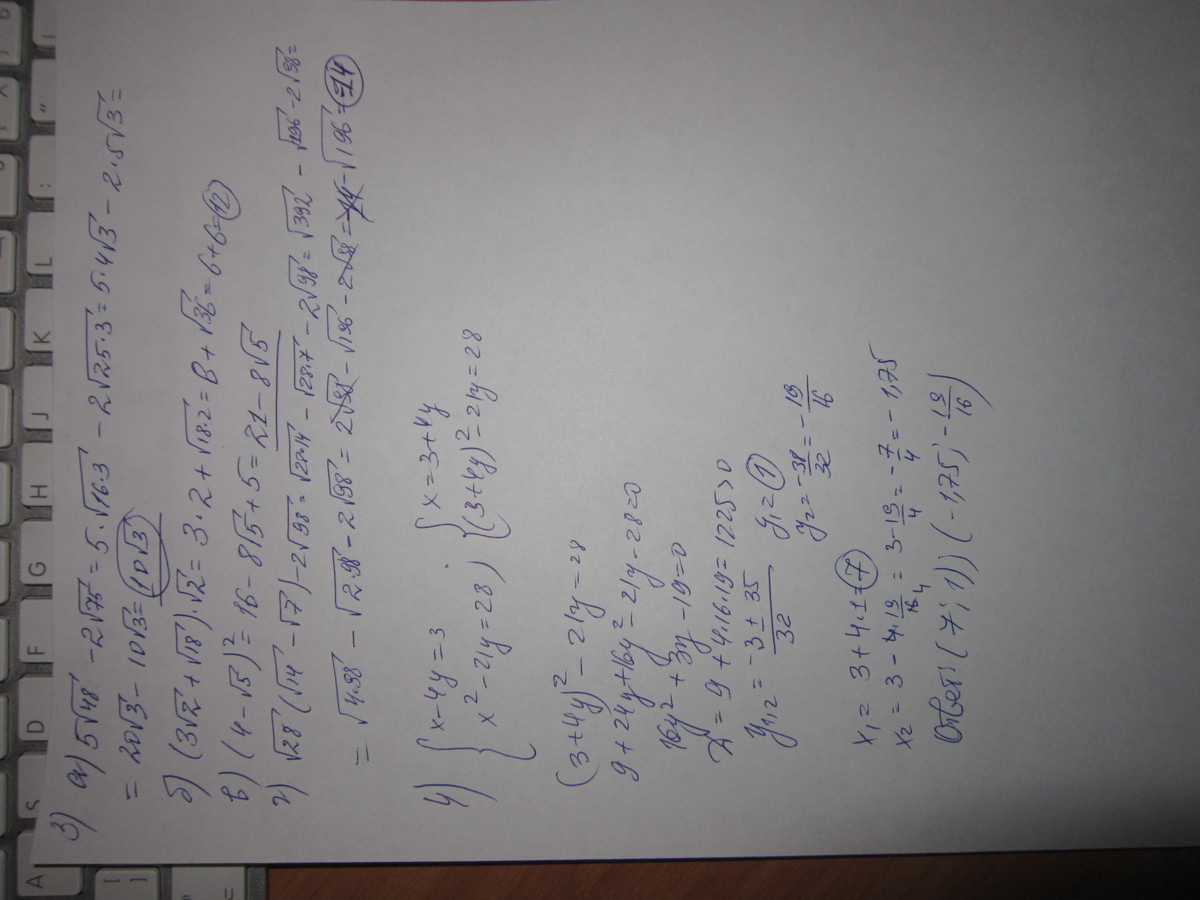 3) а) 5√48 - 2√75 = 5·√16·3 - 2√25·3 = 5·4√3 - 2·5√3 =
= 20√3 - 10√3 = 10√3
б) (3√2 + √18)·√2 = 3·2 + √18·2 = 6 + √36 = 6+6=12
в) (4 - √5)² = 16 - 8√5 + 5 = 21 - 8√5
г) √28 (√14 - √7) - 2√98 = √28·14 - √28·7 - 2√98 = √392 - √196 - 2√98 =
= √4·98 - √2·98 - 2√98 = 2√98 - √196 - 2√98 = - √196 = -14
4) { x - 4y = 3
x² - 21y = 28
{ x = 3 + 4y
(3+4y)² - 21y = 28
(3+4y)² - 21y = 28
9 + 24y + 16y² - 21y - 28 = 0
16y² + 3y - 19 = 0
D = 9 + 4·16·19 = 1225 > 0
y₁,₂ = (-3 ± 35)/32
y₁ = 1
y₂ = -38/32 = -19/16
x₁ = 3 + 4·1 = 7
x₂ = 3 - 4·19/16 = 3 - 19/4 = -7/4 = -1,75
Ответ: (7; 1)) (-1,75; -19/16)
A S D F G H J K L : "